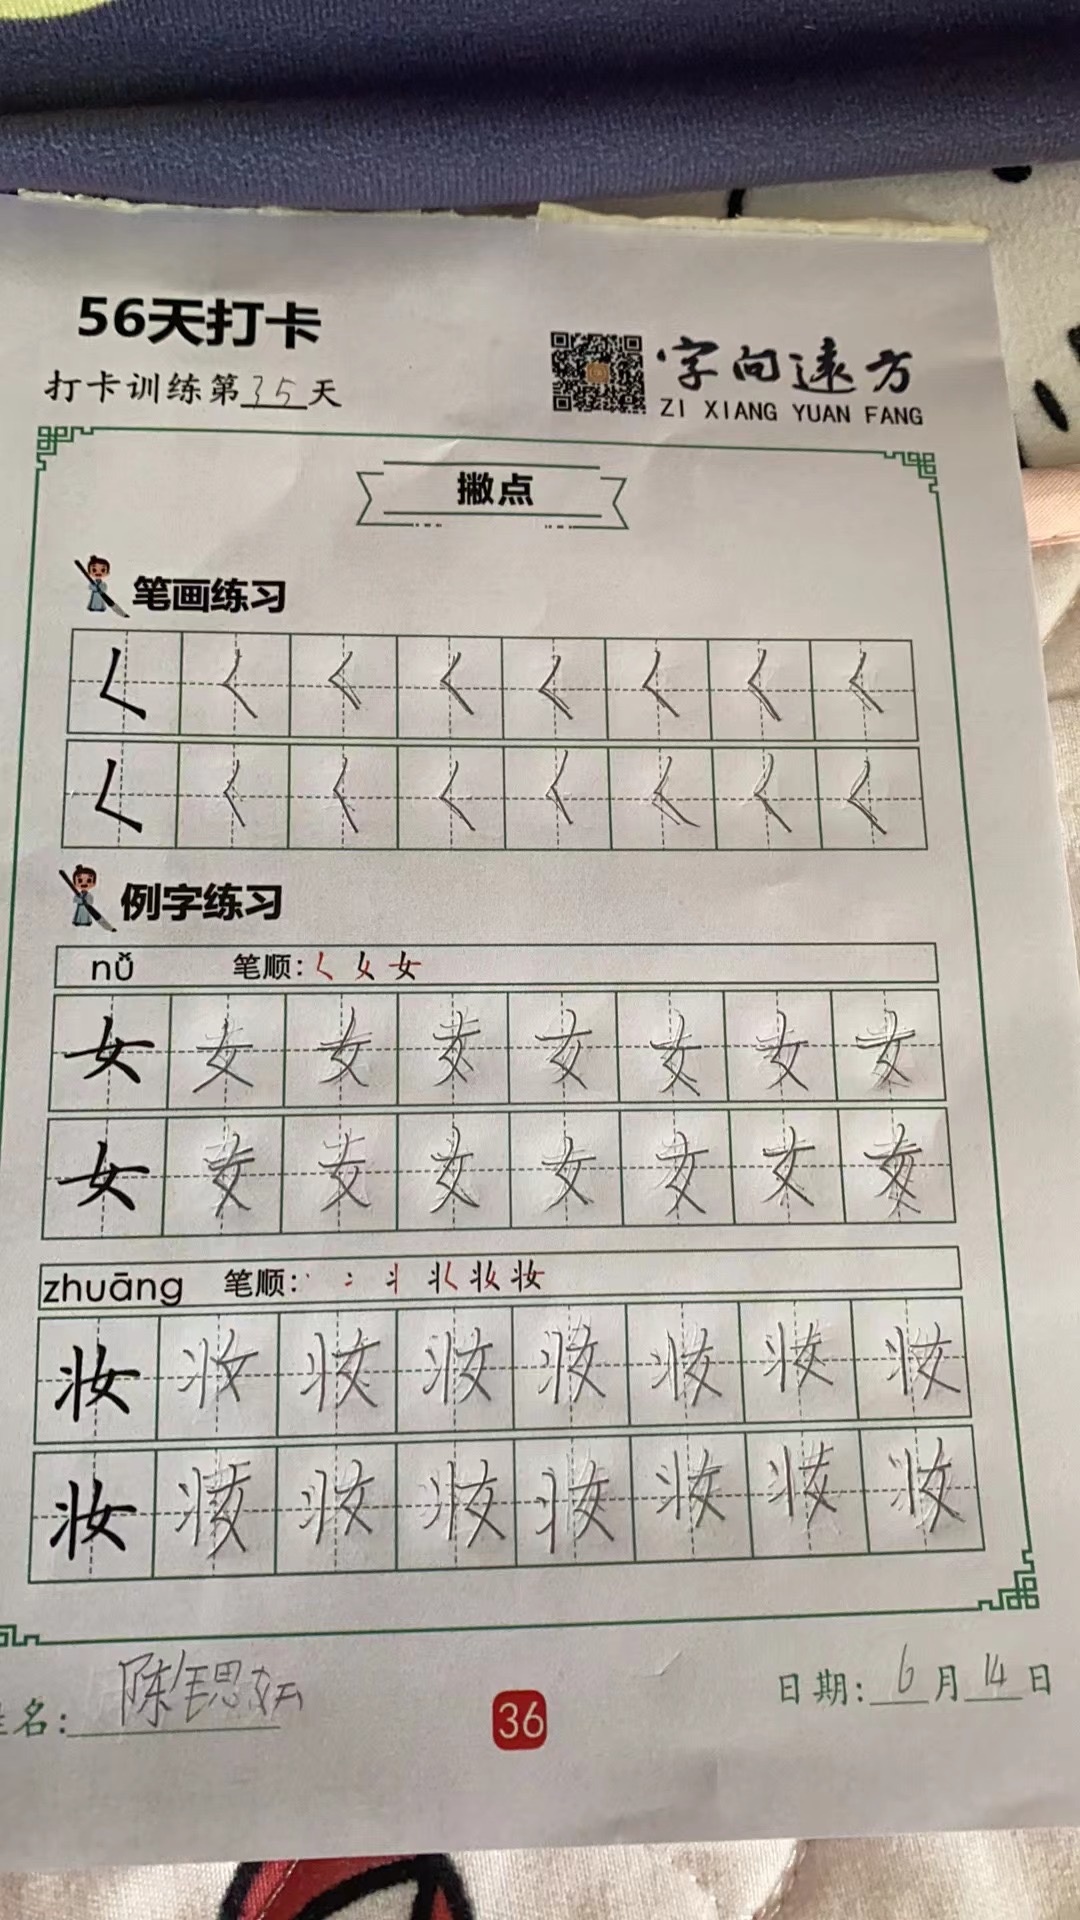 56天打卡
打卡训练第35天
字向遠方
ZI XIANG YUAN FANG
撇点
笔画练习
𡿨 𡿨 𡿨 𡿨 𡿨 𡿨 𡿨 𡿨
𡿨 𡿨 𡿨 𡿨 𡿨 𡿨 𡿨 𡿨
例字练习
nǚ 笔顺: 𡿨 女
女 女 女 女 女 女 女 女
女 女 女 女 女 女 女 女
zhuāng 笔顺: 丬 妆
妆 妆 妆 妆 妆 妆 妆 妆
妆 妆 妆 妆 妆 妆 妆 妆
名: 陈钰思妘
36
日期: 6月14日